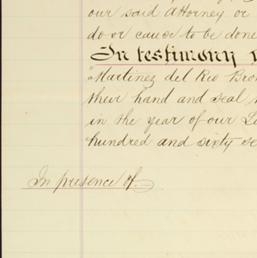 our said Attorney or
do or cause to be done
In testimony
Martinez del Rio Bro
their hand and seal
in the year of our
hundred and sixty se
In presence of